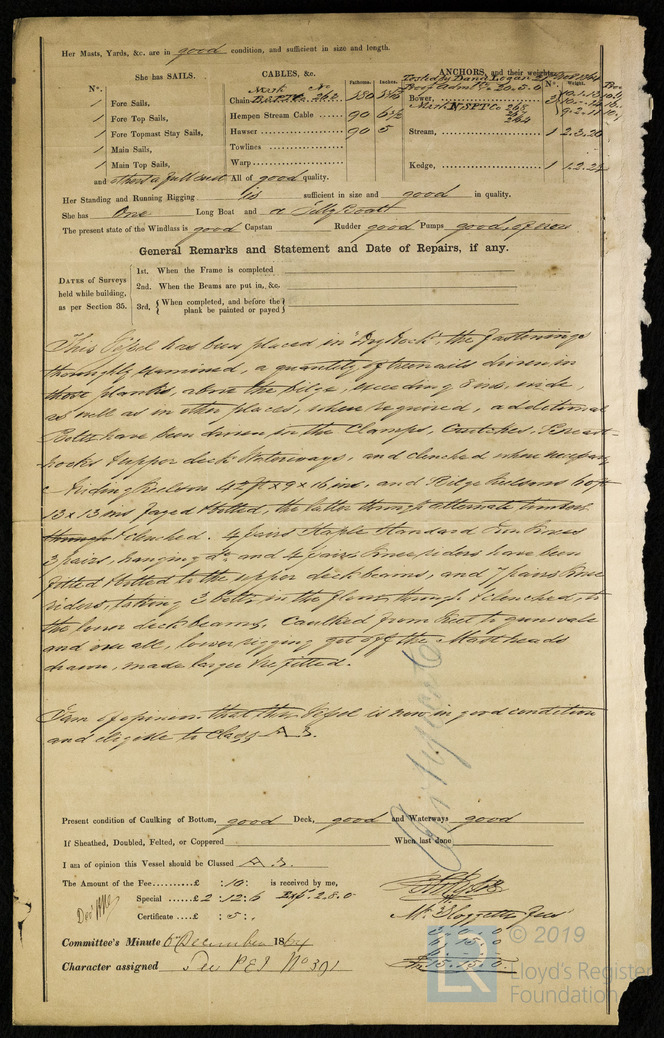 Her Masts, Yards, &c. are in good condition, and sufficient in size and length.
She has SAILS.
CABLES, &c.
Fathoms.
Inches.
ANCHORS, and their weights.
Nº.
Weight.
Nº.
1 Fore Sails,
1 Fore Top Sails,
1 Fore Topmast Stay Sails,
1 Main Sails,
1 Main Top Sails,
and others a full suit
Chain 262 180
Hempen Stream Cable 90 6½
Hawser 90 5
Towlines
Warp
All of good quality.
Bower, 3
265
264
Stream, 1 2.3.20
Kedge, 1
Her Standing and Running Rigging is sufficient in size and good in quality.
She has One Long Boat and a Jolly Boat
The present state of the Windlass is good Capstan Rudder good Pumps good, of iron
General Remarks and Statement and Date of Repairs, if any.
DATES of Surveys held while building, as per Section 35.
1st. When the Frame is completed
2nd. When the Beams are put in, &c.
3rd, When completed, and before the plank be painted or payed
This Vessel has been placed in "Dry Dock", the fastenings
thoroughly examined, a quantity of treenails driven in
those planks, above the bilge, exceeding 8 ins. wide,
as well as in other places, where required, additional
Bolts have been driven in the Clamps, Crutches, Breast-
hooks & upper deck Waterways, and clenched where necessary
a Riding Keelson 42 ft x 9 x 16 ins, and Bilge Keelsons 60 ft
13 x 13 ins faged & bolted, the latter through alternate timbers
through & clenched. 4 pairs Staple Standard Iron Knees
3 pairs, hanging do. and 4 pairs Knee riders have been
fitted & bolted to the upper deck beams, and 7 pairs Knee
riders, taking 3 bolts in the floors through & clenched, to
the lower deck beams, Caulked from Keel to gunwale
and over all, lower rigging got off the Mast heads
drawn, made larger & refitted.
I am of opinion that this Vessel is now in good condition
and eligible to Class A 1.
Present condition of Caulking of Bottom, good Deck, good and Waterways good
If Sheathed, Doubled, Felted, or Coppered When last done
I am of opinion this Vessel should be Classed A 1.
The Amount of the Fee £ :10: is received by me,
Special £2 :12:6 Exp. 2.8.0
Certificate :5:.
Committee's Minute 6th December 1864
Character assigned See PEI No 391
15.15.0
© 2019
LR
Lloyd's Register
Foundation